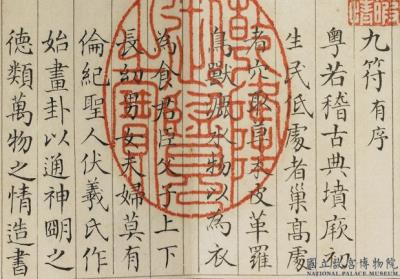 九符 有序
粵若稽古典墳厥初
生民低處者巢高處
者穴取草木皮革羅
鳥獸漁水物以為衣
為食君臣父子上下
長幼男女夫婦莫有
倫紀聖人伏羲氏作
始畫卦以通神明之
德類萬物之情造書
國立故宮博物院
NATIONAL PALACE MUSEUM